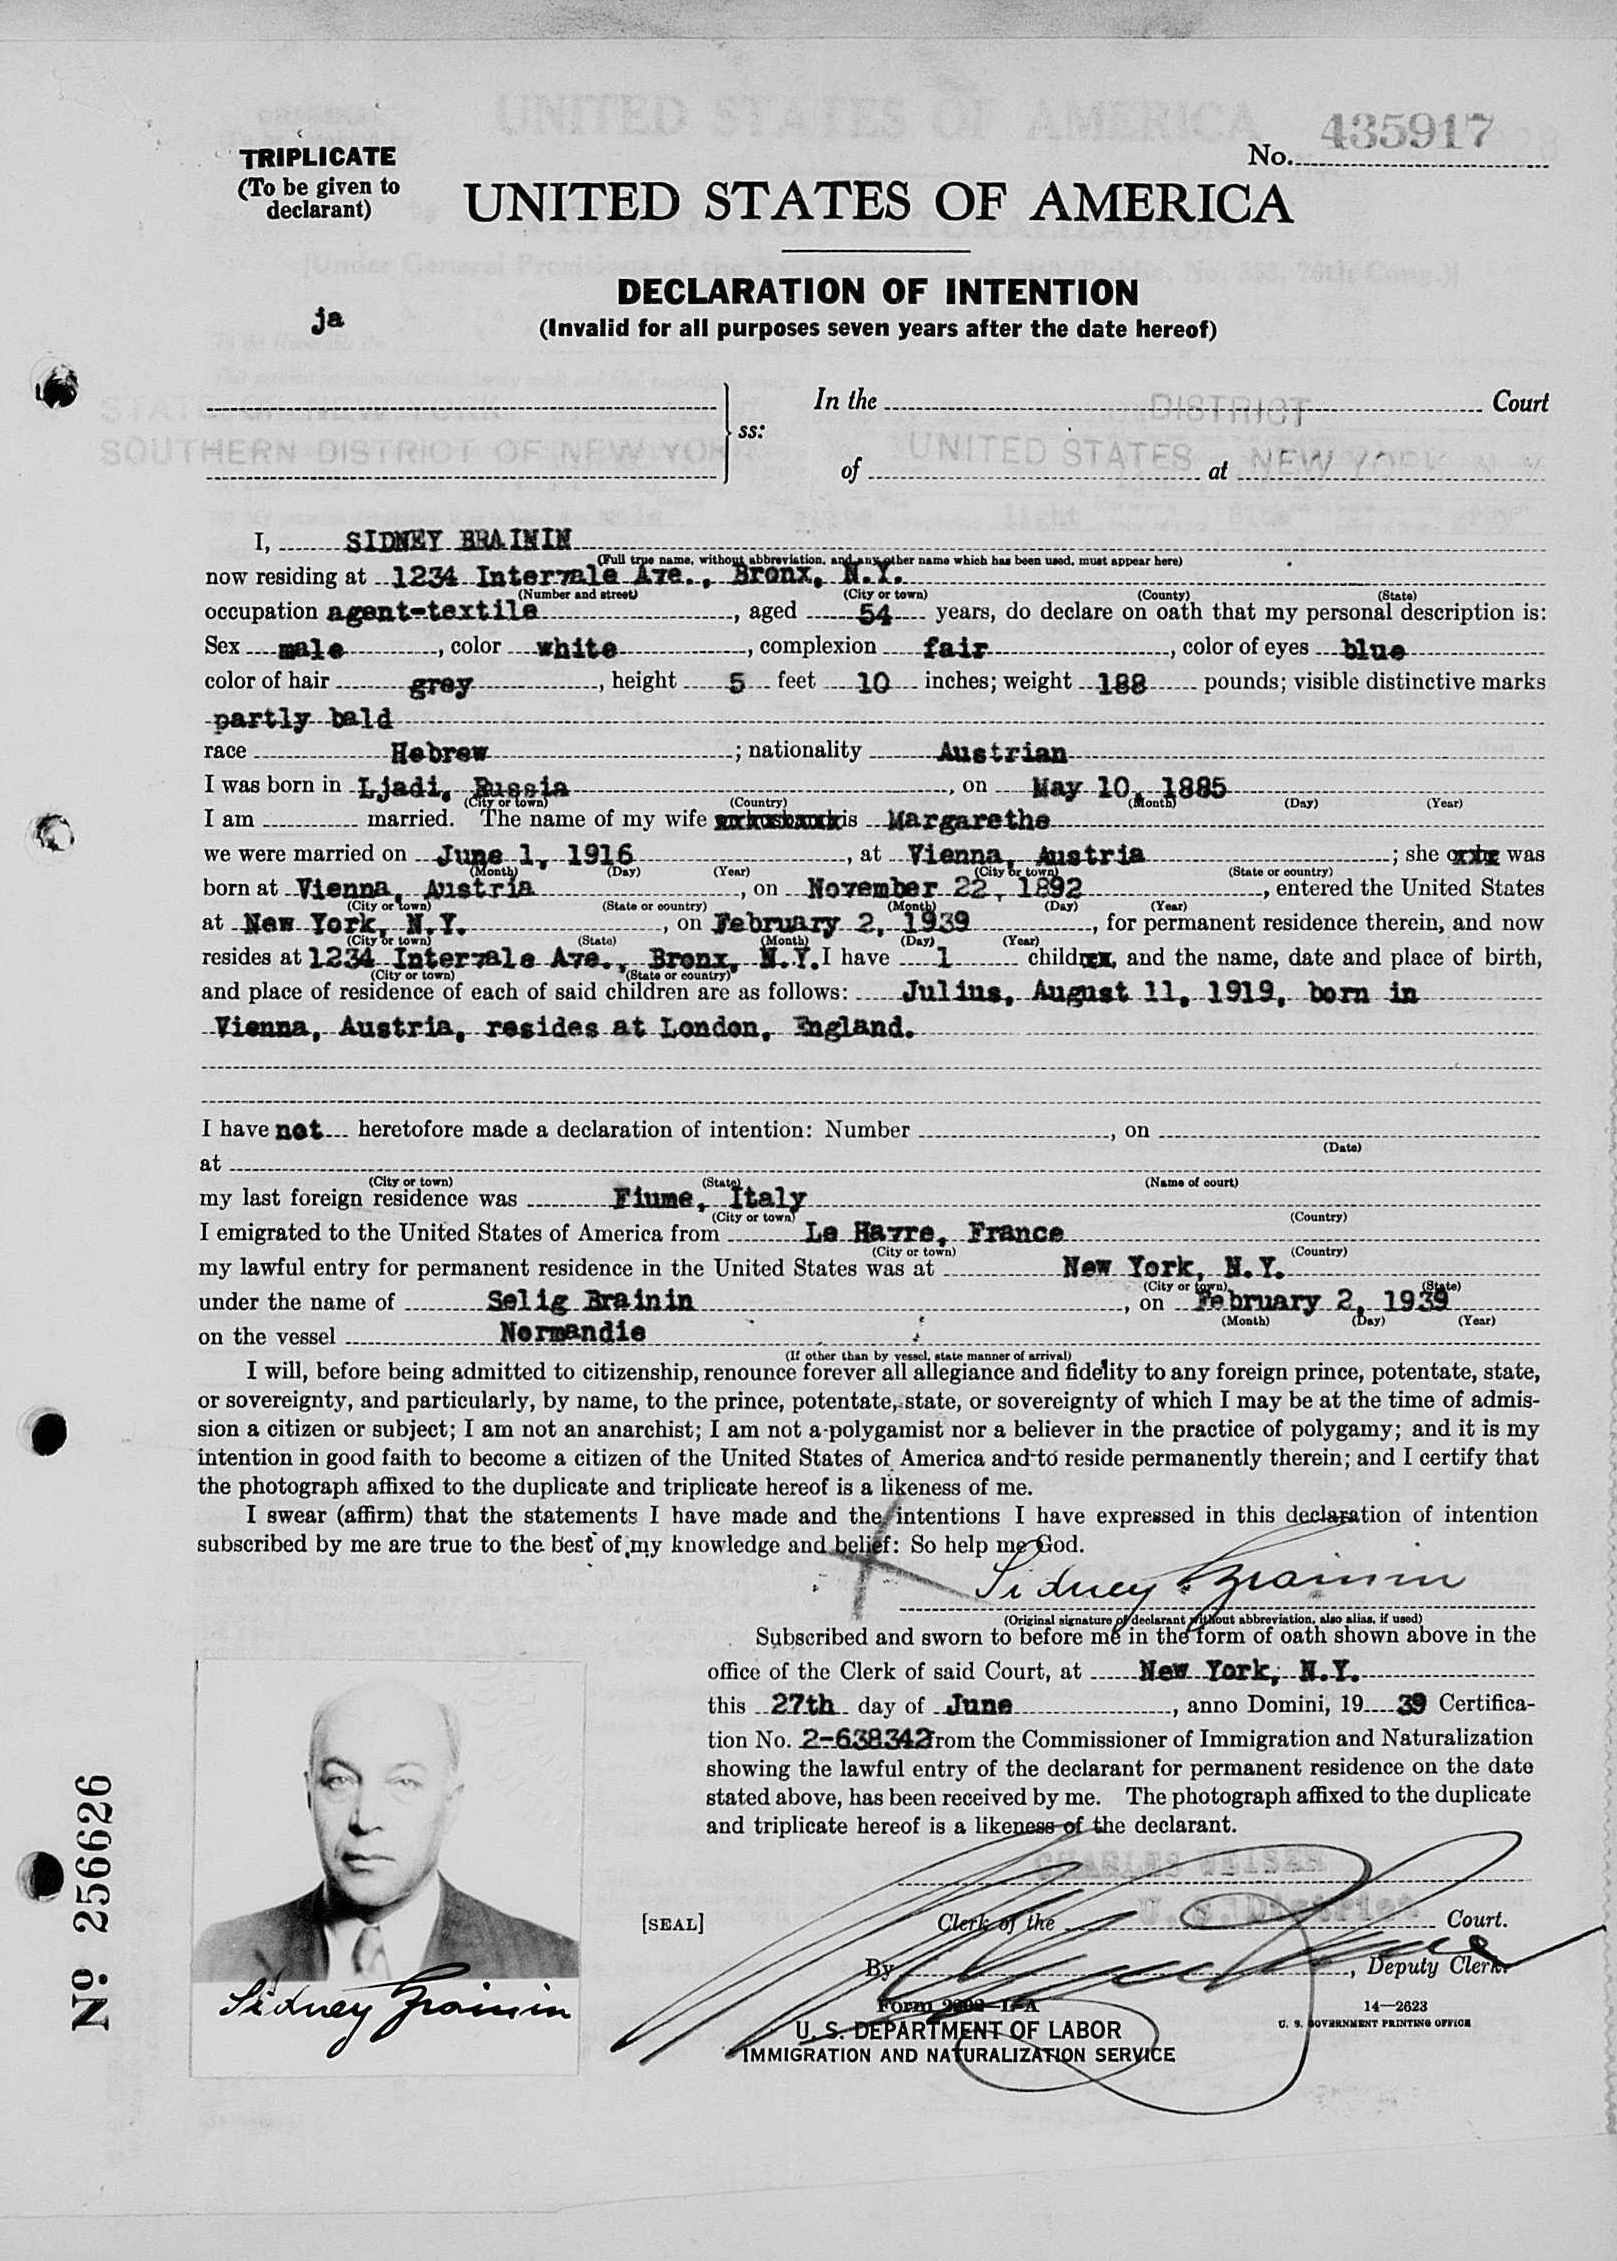 No. 435917
TRIPLICATE
(To be given to
declarant)
UNITED STATES OF AMERICA
DECLARATION OF INTENTION
(Invalid for all purposes seven years after the date hereof)
ja
In the DISTRICT Court
STATE OF NEW YORK
SOUTHERN DISTRICT OF NEW YORK
ss:
of UNITED STATES at NEW YORK
I, SIDNEY BRAININ
(Full true name, without abbreviation, and any other name which has been used, must appear here)
now residing at 1234 Intervale Ave., Bronx, N.Y.
(Number and street) (City or town) (County) (State)
occupation agent-textile, aged 54 years, do declare on oath that my personal description is:
Sex male, color white, complexion fair, color of eyes blue
color of hair grey, height 5 feet 10 inches; weight 188 pounds; visible distinctive marks
partly bald
race Hebrew; nationality Austrian
I was born in Ljadi, Russia, on May 10, 1885
(City or town) (Country) (Month) (Day) (Year)
I am married. The name of my wife is Margarethe
we were married on June 1, 1916, at Vienna, Austria; she was
(Month) (Day) (Year) (City or town) (State or country)
born at Vienna, Austria, on November 22, 1892, entered the United States
(City or town) (State or country) (Month) (Day) (Year)
at New York, N.Y., on February 2, 1939, for permanent residence therein, and now
(City or town) (State) (Month) (Day) (Year)
resides at 1234 Intervale Ave., Bronx, N.Y. I have 1 child, and the name, date and place of birth,
(City or town) (State or country)
and place of residence of each of said children are as follows: Julius, August 11, 1919, born in
Vienna, Austria, resides at London, England.
I have not heretofore made a declaration of intention: Number , on
(Date)
at
(City or town) (State) (Name of court)
my last foreign residence was Fiume, Italy
(City or town) (Country)
I emigrated to the United States of America from Le Havre, France
(City or town) (Country)
my lawful entry for permanent residence in the United States was at New York, N.Y.
(City or town) (State)
under the name of Selig Brainin, on February 2, 1939
(Month) (Day) (Year)
on the vessel Normandie
(If other than by vessel, state manner of arrival)
I will, before being admitted to citizenship, renounce forever all allegiance and fidelity to any foreign prince, potentate, state,
or sovereignty, and particularly, by name, to the prince, potentate, state, or sovereignty of which I may be at the time of admis-
sion a citizen or subject; I am not an anarchist; I am not a polygamist nor a believer in the practice of polygamy; and it is my
intention in good faith to become a citizen of the United States of America and to reside permanently therein; and I certify that
the photograph affixed to the duplicate and triplicate hereof is a likeness of me.
I swear (affirm) that the statements I have made and the intentions I have expressed in this declaration of intention
subscribed by me are true to the best of my knowledge and belief: So help me God.
Sidney Brainin
(Original signature of declarant without abbreviation, also alias, if used)
Subscribed and sworn to before me in the form of oath shown above in the
office of the Clerk of said Court, at New York, N.Y.
this 27th day of June, anno Domini, 19 39 Certifica-
tion No. 2-638342 from the Commissioner of Immigration and Naturalization
showing the lawful entry of the declarant for permanent residence on the date
stated above, has been received by me. The photograph affixed to the duplicate
and triplicate hereof is a likeness of the declarant.
CHARLES WEISER
[SEAL] Clerk of the U. S. District Court.
By , Deputy Clerk.
Form 2202—L-A
14—2623
U. S. GOVERNMENT PRINTING OFFICE
U. S. DEPARTMENT OF LABOR
IMMIGRATION AND NATURALIZATION SERVICE
Sidney Brainin
No. 256626